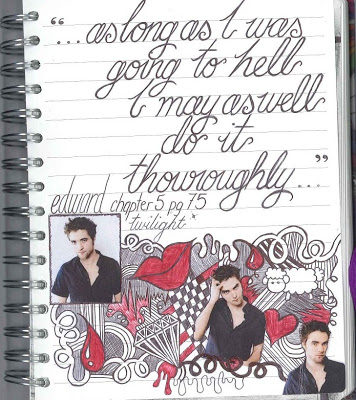 "...as long as I was
going to hell
I may as well
do it
thouroughly..."
edward chapter 5 pg 75
twilight